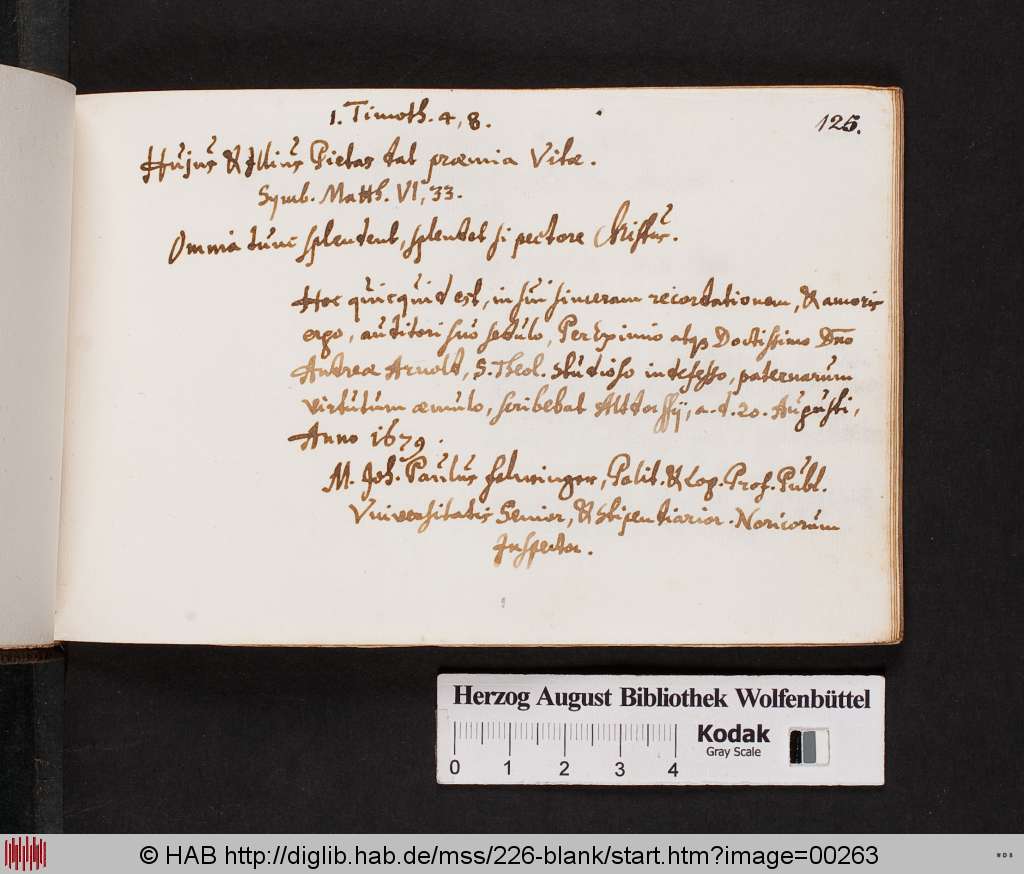 1. Timoth. 4, 8.
125.
Hujus & Illius Pietas dat præmia Vitæ.
Symb. Matth. VI, 33.
Omnia tunc splendent, splendet si pectore Christus.
Hoc quicquid est, in sui sinceram recordationem, & amoris
ergo, auditori suo sedulo, PerEximio atq₃ Doctissimo Dño
Andreæ Arnold, S. Theol. Studioso indefesso, paternarum
virtutum æmulo, scribebat Altdorffij, a. d. 20. Augusti,
Anno 1679.
M. Joh. Paulus Felwinger, Polit. & Log. Prof. Publ.
Universitatis Senior, & Stipendiarior. Noricorum
Inspector.
Herzog August Bibliothek Wolfenbüttel
Kodak
Gray Scale
0 1 2 3 4
© HAB http://diglib.hab.de/mss/226-blank/start.htm?image=00263